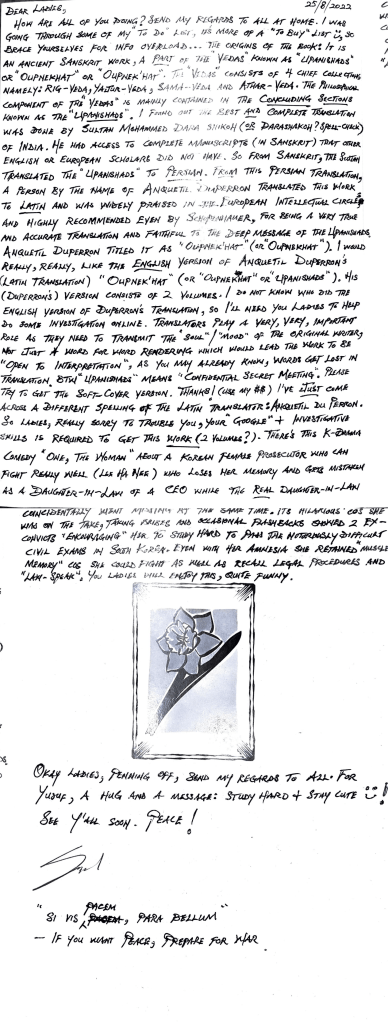 25/8/2022
DEAR LADIES,
HOW ARE ALL OF YOU DOING? SEND MY REGARDS TO ALL AT HOME. I WAS
GOING THROUGH SOME OF MY "TO DO" LIST, ITS MORE OF A "TO BUY" LIST, SO
BRACE YOURSELVES FOR INFO OVERLOAD... THE ORIGINS OF THE BOOK: IT IS
AN ANCIENT SANSKRIT WORK, A PART OF THE "VEDAS" KNOWN AS "UPANISHADS"
OR "OUPNEKHAT" OR "OUPNEK'HAT". THE "VEDAS" CONSISTS OF 4 CHIEF COLLECTIONS
NAMELY: RIG-VEDA, YAJUR-VEDA, SAMA-VEDA AND ATHAR-VEDA. THE PHILOSOPHICAL
COMPONENT OF THE "VEDAS" IS MAINLY CONTAINED IN THE CONCLUDING SECTIONS
KNOWN AS THE "UPANISHADS". I FOUND OUT THE BEST AND COMPLETE TRANSLATION
WAS DONE BY SULTAN MOHAMMED DARA SHIKOH (OR DARASHAKOH? SPELL-CHECK)
OF INDIA. HE HAD ACCESS TO COMPLETE MANUSCRIPTS (IN SANSKRIT) THAT OTHER
ENGLISH OR EUROPEAN SCHOLARS DID NOT HAVE. SO FROM SANSKRIT, THE SULTAN
TRANSLATED THE "UPANISHADS" TO PERSIAN. FROM THIS PERSIAN TRANSLATION,
A PERSON BY THE NAME OF ANQUETIL DUPERRON TRANSLATED THIS WORK
TO LATIN AND WAS WIDELY PRAISED IN THE EUROPEAN INTELLECTUAL CIRCLES
AND HIGHLY RECOMMENDED EVEN BY SCHOPENHAUER, FOR BEING A VERY TRUE
AND ACCURATE TRANSLATION AND FAITHFUL TO THE DEEP MESSAGE OF THE UPANISHADS.
ANQUETIL DUPERRON TITLED IT AS "OUPNEK'HAT" (OR "OUPNEKHAT"). I WOULD
REALLY, REALLY, LIKE THE ENGLISH VERSION OF ANQUETIL DUPERRON'S
(LATIN TRANSLATION) "OUPNEK'HAT" (OR "OUPNEKHAT" OR "UPANISHADS"). HIS
(DUPERRON'S) VERSION CONSISTS OF 2 VOLUMES. I DO NOT KNOW WHO DID THE
ENGLISH VERSION OF DUPERRON'S TRANSLATION, SO I'LL NEED YOU LADIES TO HELP
DO SOME INVESTIGATION ONLINE. TRANSLATORS PLAY A VERY, VERY, IMPORTANT
ROLE AS THEY NEED TO TRANSMIT THE "SOUL"/"MOOD" OF THE ORIGINAL WRITER,
NOT JUST A WORD FOR WORD RENDERING WHICH WOULD LEAD THE WORK TO BE
"OPEN TO INTERPRETATION", AS YOU MAY ALREADY KNOW, WORDS GET LOST IN
TRANSLATION. BTW "UPANISHADS" MEANS "CONFIDENTIAL SECRET MEETING". PLEASE
TRY TO GET THE SOFT-COVER VERSION. THANKS! (USE MY $$) I'VE JUST COME
ACROSS A DIFFERENT SPELLING OF THE LATIN TRANSLATOR: ANQUETIL DU PERRON.
SO LADIES, REALLY SORRY TO TROUBLE YOU, YOUR "GOOGLE" + INVESTIGATIVE
SKILLS IS REQUIRED TO GET THIS WORK (2 VOLUMES?). THERE'S THIS K-DRAMA
COMEDY "ONE, THE WOMAN" ABOUT A KOREAN FEMALE PROSECUTOR WHO CAN
FIGHT REALLY WELL (LEE HA NEE) WHO LOSES HER MEMORY AND GETS MISTAKEN
AS A DAUGHTER-IN-LAW OF A CEO WHILE THE REAL DAUGHTER-IN-LAW
COINCIDENTALLY WENT MISSING AT THE SAME TIME. ITS HILARIOUS 'COS SHE
WAS ON THE TAKE, TAKING BRIBES AND OCCASIONAL FLASHBACKS SHOWED 2 EX-
CONVICTS "ENCOURAGING" HER TO STUDY HARD TO PASS THE NOTORIOUSLY DIFFICULT
CIVIL EXAMS IN SOUTH KOREA. EVEN WITH HER AMNESIA SHE RETAINED "MUSCLE
MEMORY" COS SHE COULD FIGHT AS WELL AS RECALL LEGAL PROCEDURES AND
"LAW-SPEAK". YOU LADIES WILL ENJOY THIS, QUITE FUNNY.
OKAY LADIES, PENNING OFF, SEND MY REGARDS TO ALL. FOR
YUSUF, A HUG AND A MESSAGE: STUDY HARD + STAY CUTE!
SEE Y'ALL SOON. PEACE!
" SI VIS PACEM, PARA BELLUM"
— IF YOU WANT PEACE, PREPARE FOR WAR.